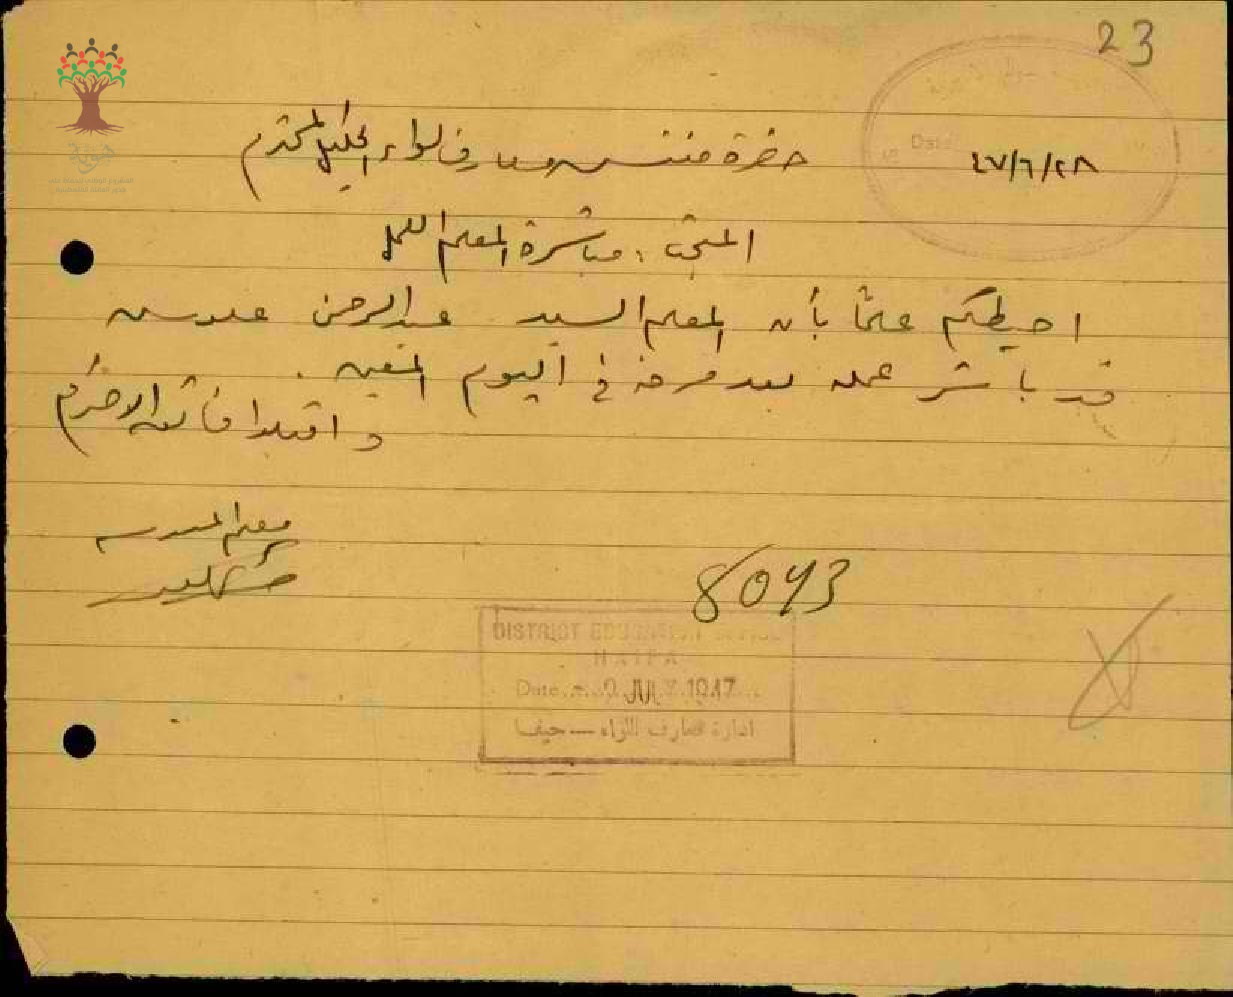 23
٤٧/٦/٢٨
حضرة مفتش معارف لواء الجليل المحترم
المبحث : مباشرة المعلم العمل
احيطكم علماً بأن المعلم السيد عبد الرحمن
قد باشر عمله بعد مرضه في اليوم المعين .
و اقبلوا فائق الاحترام
معلم المدرسة
8043
DISTRICT EDUCATION OFFICE
HAIFA
Date JUL 1947
ادارة معارف اللواء — حيفا
Date
هوية